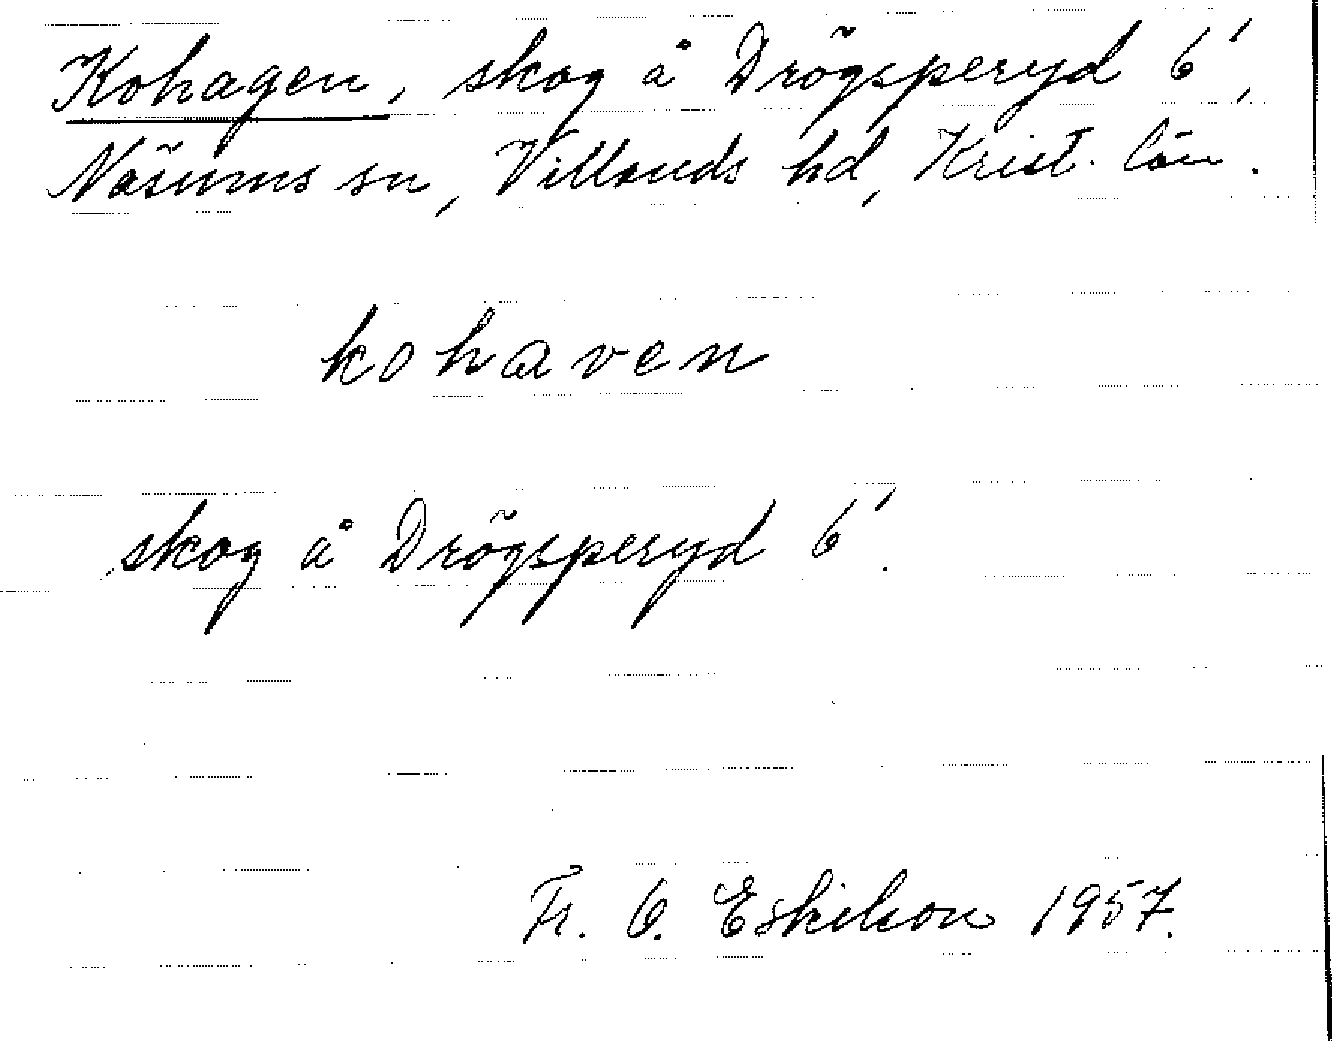 Kohagen, skog å Drögsperyd 6¹,
Näsums sn, Villands hd, Krist. län.
kohaven
skog å Drögsperyd 6¹.
Fr. O. Eskilson 1957.